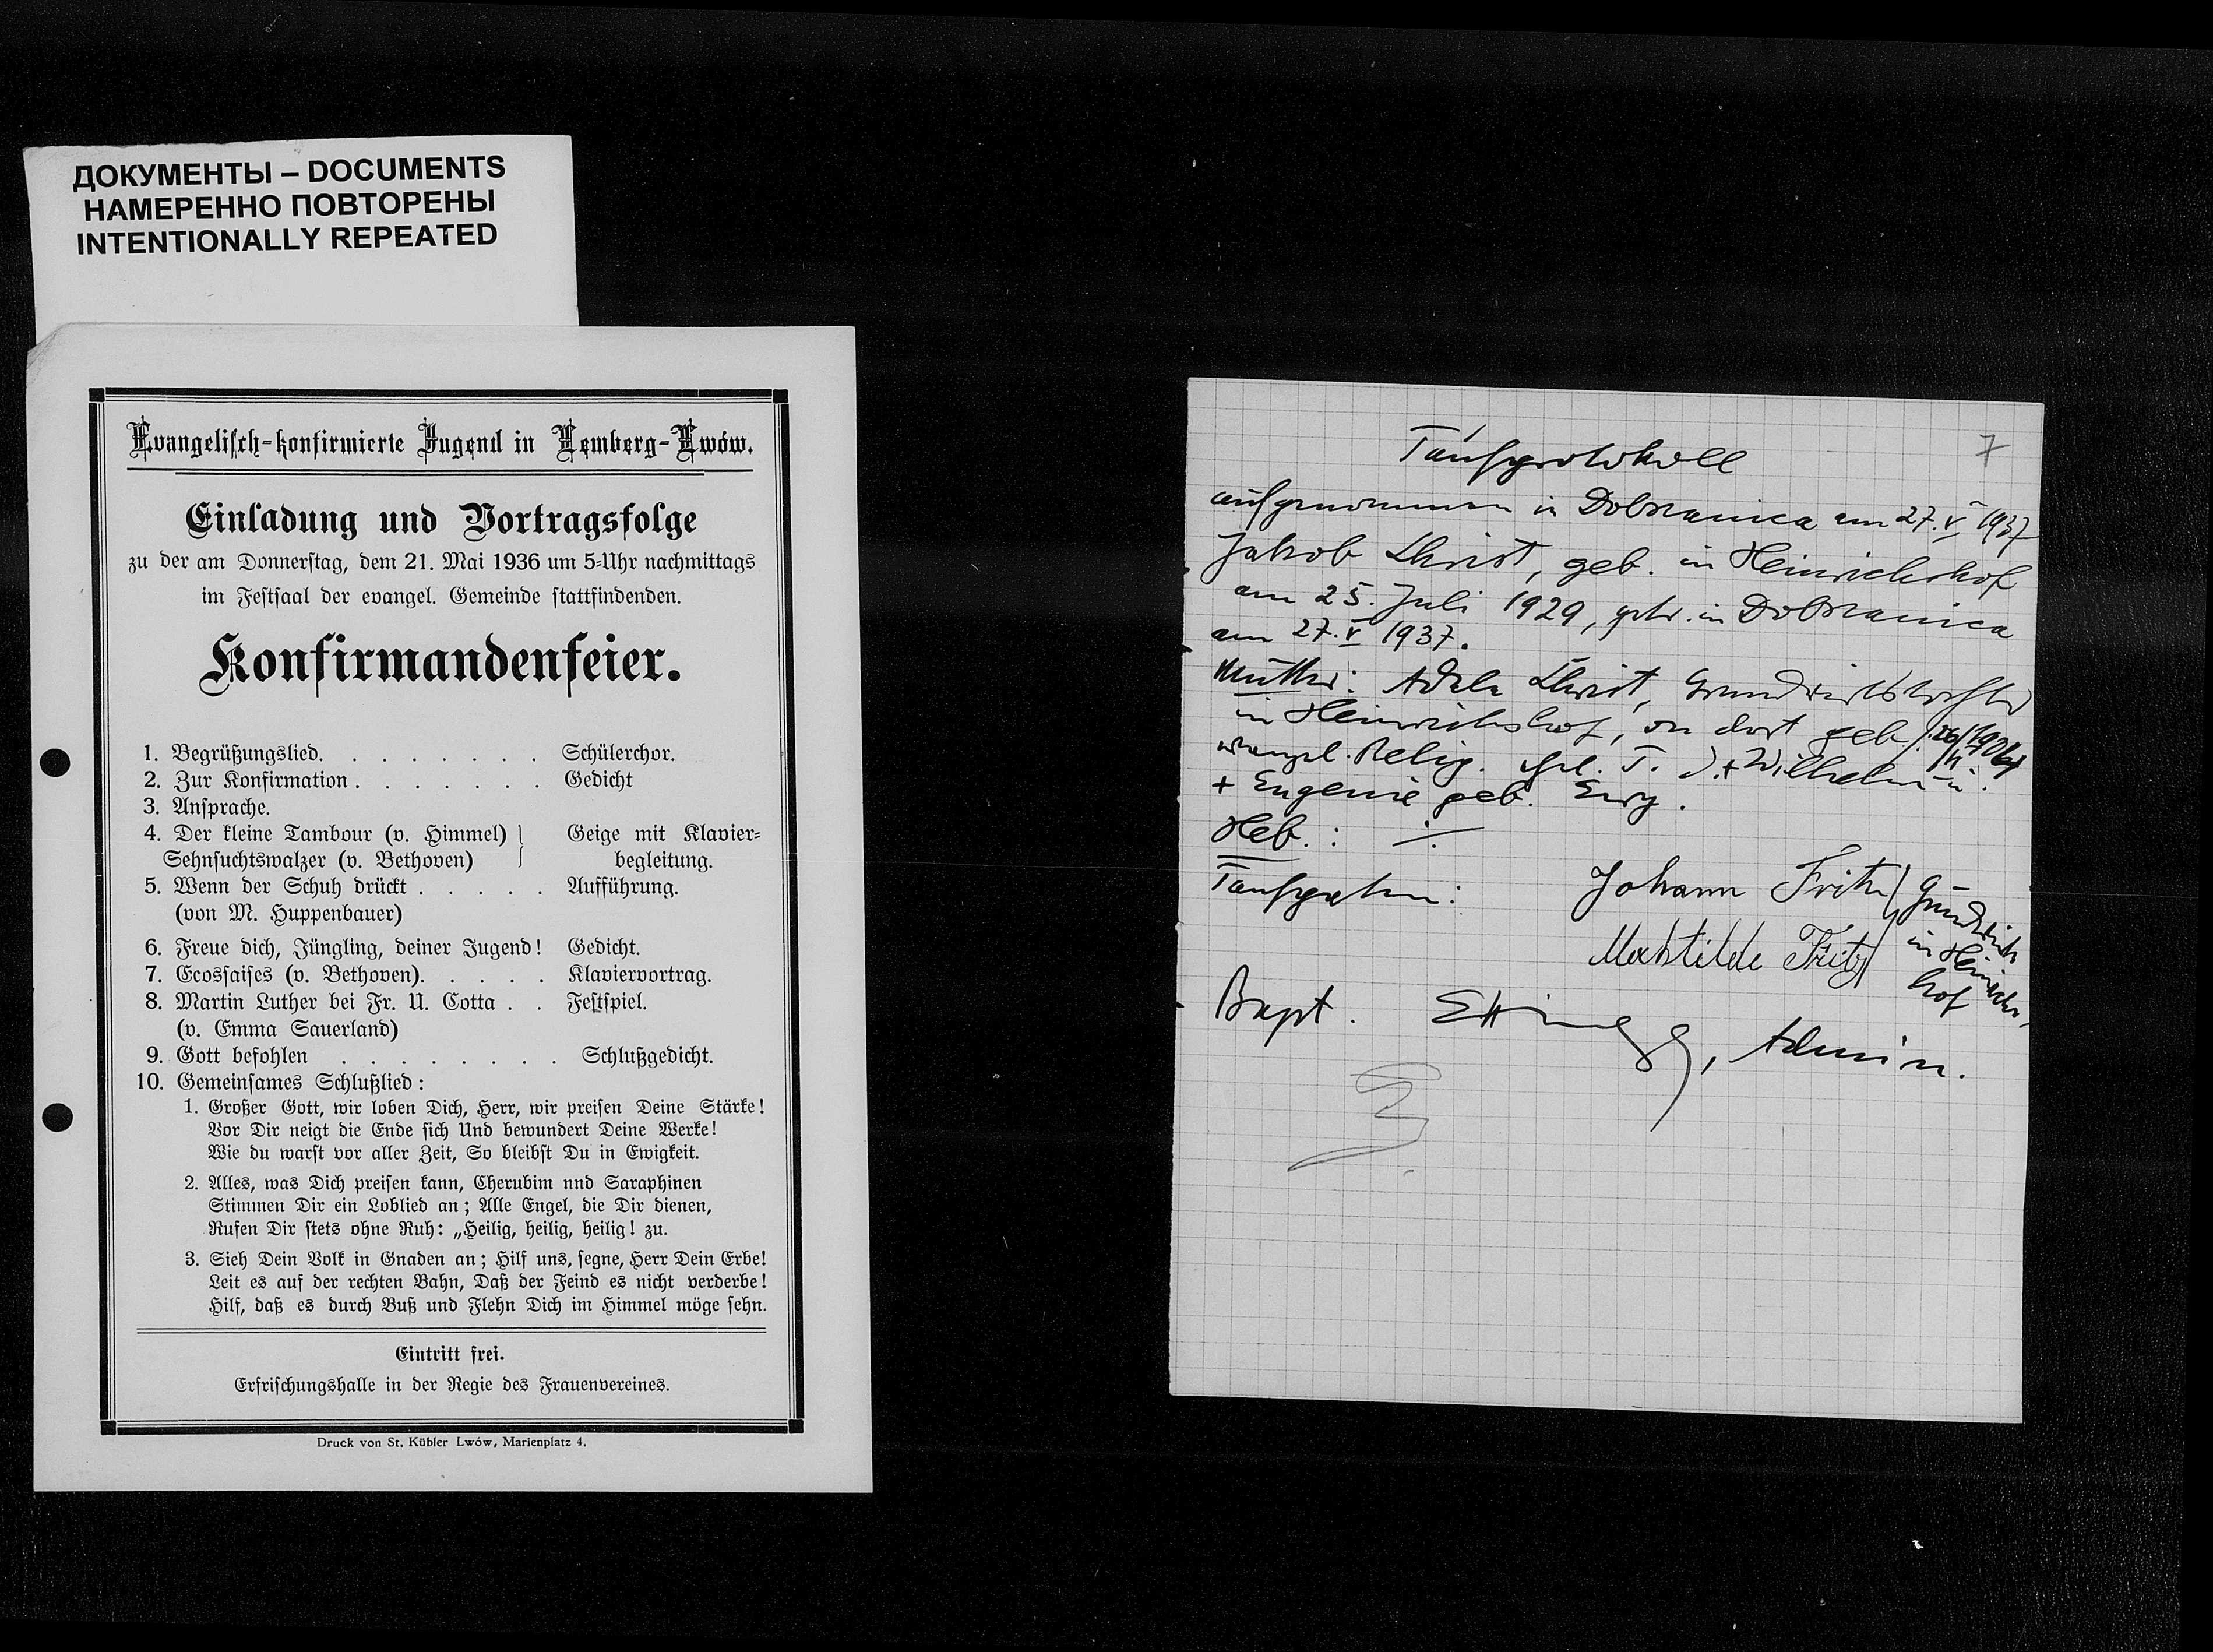 ДОКУМЕНТЫ – DOCUMENTS
НАМЕРЕННО ПОВТОРЕНЫ
INTENTIONALLY REPEATED
Evangelisch-konfirmierte Jugend in Lemberg-Lwów.
Einladung und Vortragsfolge
zu der am Donnerstag, dem 21. Mai 1936 um 5-Uhr nachmittags
im Festsaal der evangel. Gemeinde stattfindenden.
Konfirmandenfeier.
1. Begrüßungslied. . . . . . . . Schülerchor.
2. Zur Konfirmation . . . . . . . Gedicht
3. Ansprache.
4. Der kleine Tambour (v. Himmel) } Geige mit Klavier-
Sehnsuchtswalzer (v. Bethoven) } begleitung.
5. Wenn der Schuh drückt . . . . . Aufführung.
(von M. Huppenbauer)
6. Freue dich, Jüngling, deiner Jugend! Gedicht.
7. Ecossaises (v. Bethoven). . . . . Klaviervortrag.
8. Martin Luther bei Fr. U. Cotta . . Festspiel.
(v. Emma Sauerland)
9. Gott befohlen . . . . . . . . Schlußgedicht.
10. Gemeinsames Schlußlied:
1. Großer Gott, wir loben Dich, Herr, wir preisen Deine Stärke!
Vor Dir neigt die Ende sich Und bewundert Deine Werke!
Wie du warst vor aller Zeit, So bleibst Du in Ewigkeit.
2. Alles, was Dich preisen kann, Cherubim nnd Saraphinen
Stimmen Dir ein Loblied an; Alle Engel, die Dir dienen,
Rufen Dir stets ohne Ruh: „Heilig, heilig, heilig! zu.
3. Sieh Dein Volk in Gnaden an; Hilf uns, segne, Herr Dein Erbe!
Leit es auf der rechten Bahn, Daß der Feind es nicht verderbe!
Hilf, daß es durch Buß und Flehn Dich im Himmel möge sehn.
Eintritt frei.
Erfrischungshalle in der Regie des Frauenvereines.
Druck von St. Kübler Lwów, Marienplatz 4.
7
Taufprotokoll
aufgenommen in Dobrzanica am 27. V 1937
Jakob Christ, geb. in Heinrichshof
am 25. Juli 1929, get. in Dobrzanica
am 27. V 1937.
Mutter: Adele Christ, Grundwirtstochter
in Heinrichshof, dort geb. 1904
evangel. Relig. T. d. + Wilhelm u.
+ Eugenie geb.
Heb.: ÷
Taufpaten: Johann Fritz / Grundwirte
Mathilde Fritz / in Heinrichs-
hof
Bapt. Ettinger, Admin.